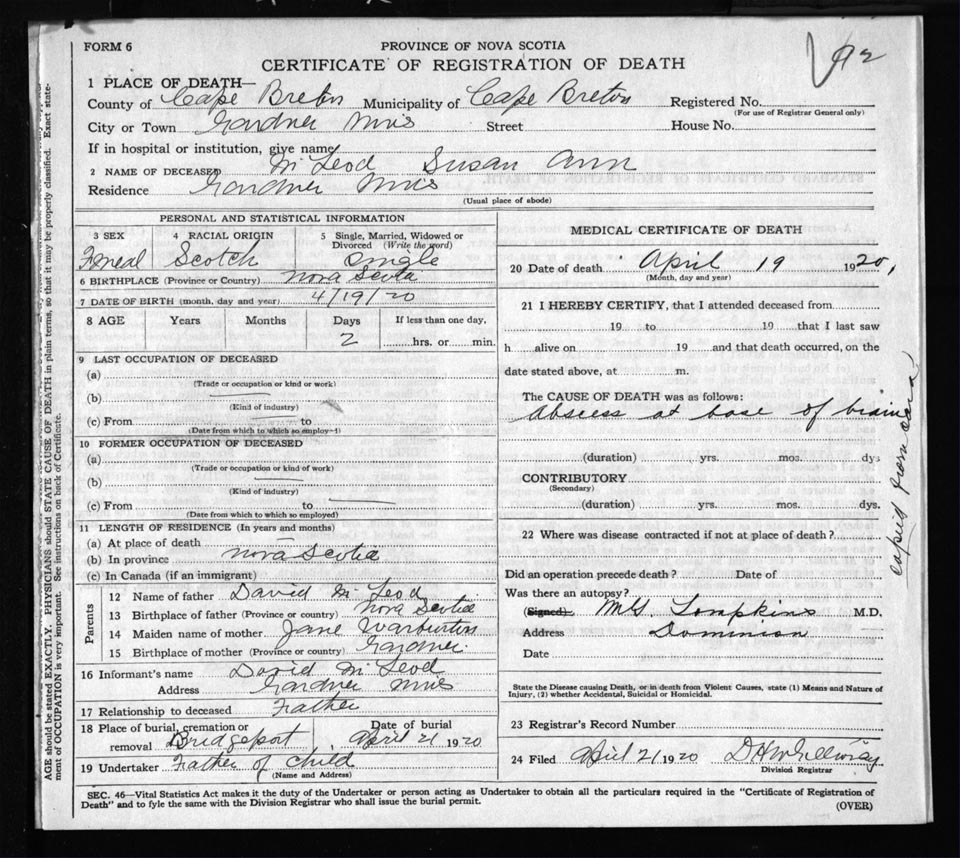 FORM 6
PROVINCE OF NOVA SCOTIA
CERTIFICATE OF REGISTRATION OF DEATH
1 PLACE OF DEATH—
County of Cape Breton Municipality of Cape Breton Registered No.
(For use of Registrar General only)
City or Town Gardner Mines Street House No.
If in hospital or institution, give name
2 NAME OF DECEASED McLeod Susan Ann
Residence Gardner Mines
(Usual place of abode)
PERSONAL AND STATISTICAL INFORMATION
3 SEX 4 RACIAL ORIGIN 5 Single, Married, Widowed or Divorced (Write the word)
Scotch Single
6 BIRTHPLACE (Province or Country) Nova Scotia
7 DATE OF BIRTH (month, day and year) 4/19/20
8 AGE Years Months Days If less than one day,
2 hrs. or min.
9 LAST OCCUPATION OF DECEASED
(a)
(Trade or occupation or kind or work)
(b)
(Kind of industry)
(c) From to
(Date from which to which so employ-1)
10 FORMER OCCUPATION OF DECEASED
(a)
(Trade or occupation or kind of work)
(b)
(Kind of industry)
(c) From to
(Date from which to which so employed)
11 LENGTH OF RESIDENCE (In years and months)
(a) At place of death
(b) In province Nova Scotia
(c) In Canada (if an immigrant)
Parents
12 Name of father David McLeod
13 Birthplace of father (Province or country) Nova Scotia
14 Maiden name of mother Jane Warburton
15 Birthplace of mother (Province or country) Gardner
16 Informant's name David McLeod
Address Gardner Mines
17 Relationship to deceased Father
18 Place of burial, cremation or removal Bridgeport Date of burial April 21 1920
19 Undertaker Father of Child
(Name and Address)
MEDICAL CERTIFICATE OF DEATH
20 Date of death April 19 1920,
(Month, day and year)
21 I HEREBY CERTIFY, that I attended deceased from
19 to 19 that I last saw
h alive on 19 and that death occurred, on the
date stated above, at m.
The CAUSE OF DEATH was as follows:
Abscess at base of brain
(duration) yrs. mos. dys
CONTRIBUTORY
(Secondary)
(duration) yrs. mos. dys.
22 Where was disease contracted if not at place of death?
Did an operation precede death? Date of
Was there an autopsy?
(Signed) M G Tompkins M.D.
Address Dominion
Date
State the Disease causing Death, or in death from Violent Causes, state (1) Means and Nature of
Injury, (2) whether Accidental, Suicidal or Homicidal.
23 Registrar's Record Number
24 Filed April 21 1920
Division Registrar
SEC. 46—Vital Statistics Act makes it the duty of the Undertaker or person acting as Undertaker to obtain all the particulars required in the "Certificate of Registration of
Death" and to fyle the same with the Division Registrar who shall issue the burial permit.
(OVER)
AGE should be stated EXACTLY. PHYSICIANS should STATE CAUSE OF DEATH in plain terms, so that it may be properly classified. Exact state-
ment of OCCUPATION is very important. See instructions on back of Certificate.